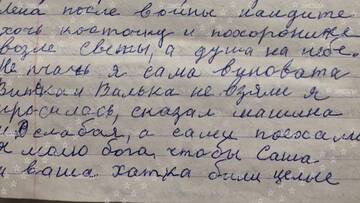 лена после войны найдите
хоть косточку и похороните
возле Светы, а душа на небе.
Не плачь я сама вуновата
Зинка и Валька не взяли я
просилась, сказал машина
слабая, а сами поехали
я молю бога, чтобы Саша
и ваша хатка были целые